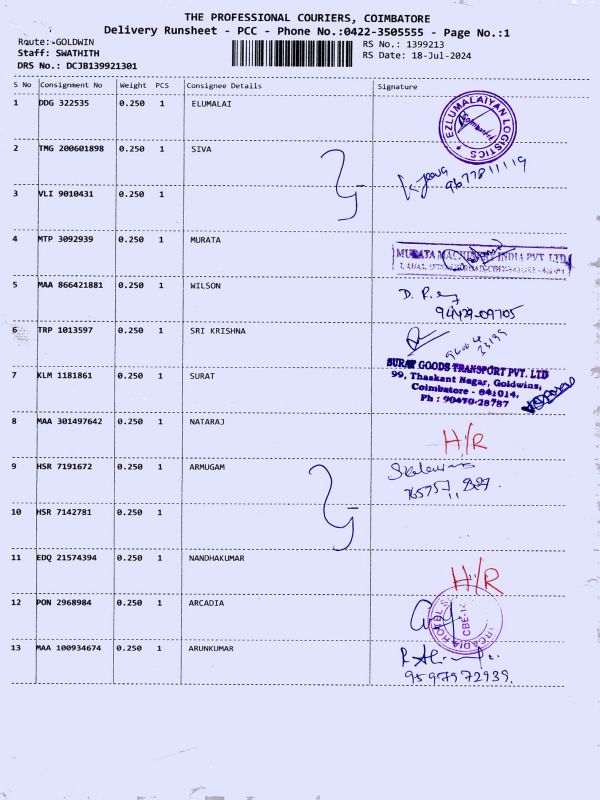 THE PROFESSIONAL COURIERS, COIMBATORE
Delivery Runsheet - PCC - Phone No.:0422-3505555 - Page No.:1
Route:-GOLDWIN
Staff: SWATHITH
DRS No.: DCJB139921301
RS No.: 1399213
RS Date: 18-Jul-2024
S No Consignment No Weight PCS Consignee Details Signature
1 DDG 322535 0.250 1 ELUMALAI
EZLUMALAIYAN LOGISTICS
Coimbatore
2 TMG 200601898 0.250 1 SIVA
9677811119
3 VLI 9010431 0.250 1
4 MTP 3092939 0.250 1 MURATA
MURATA MACHINERY INDIA PVT LTD
5 MAA 866421881 0.250 1 WILSON
94429-09705
6 TRP 1013597 0.250 1 SRI KRISHNA
7 KLM 1181861 0.250 1 SURAT
SURAT GOODS TRANSPORT PVT. LTD
99, Thaakant Nagar, Goldwins,
Coimbatore - 641014.
Ph : 90470-28787
8 MAA 301497642 0.250 1 NATARAJ
H/R
9 HSR 7191672 0.250 1 ARMUGAM
10 HSR 7142781 0.250 1
11 EDQ 21574394 0.250 1 NANDHAKUMAR
H/R
12 PON 2968984 0.250 1 ARCADIA
13 MAA 100934674 0.250 1 ARUNKUMAR
9597972939.